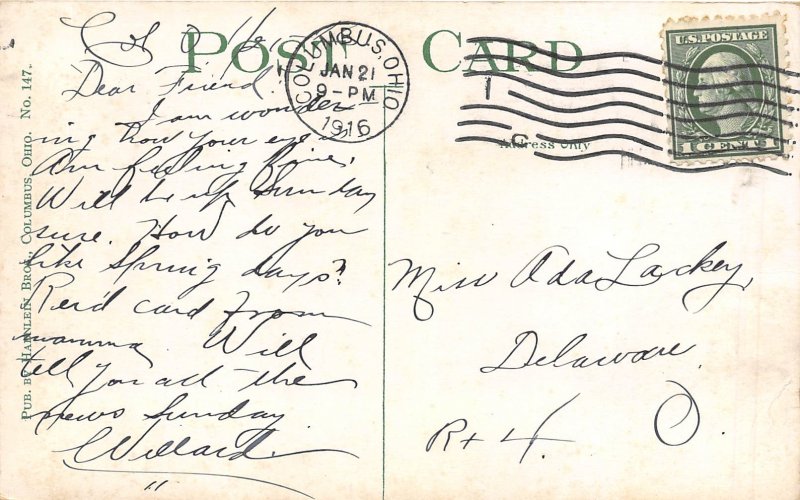 POST CARD
Address Only
PUB. BY HAENLEIN BROS., COLUMBUS, OHIO. No. 147.
COLUMBUS, OHIO
JAN 21
9-PM
1916
U.S. POSTAGE
1 CENT 1
Dear Friend:
I am wonder-
ing how your eye is
Am feeling fine,
Will be up Sunday
sure. How do you
like Spring days?
Rec'd card from
mamma. Will
tell you all the
news Sunday.
Willard.
Miss Ada Lackey,
Delaware.
R + 4. O.